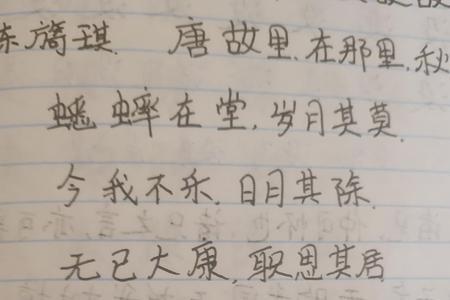 陈旖琪. 唐故里.在那里.秋
蟋蟀在堂,岁月其莫.
今我不乐,日月其除.
无已大康,职思其居